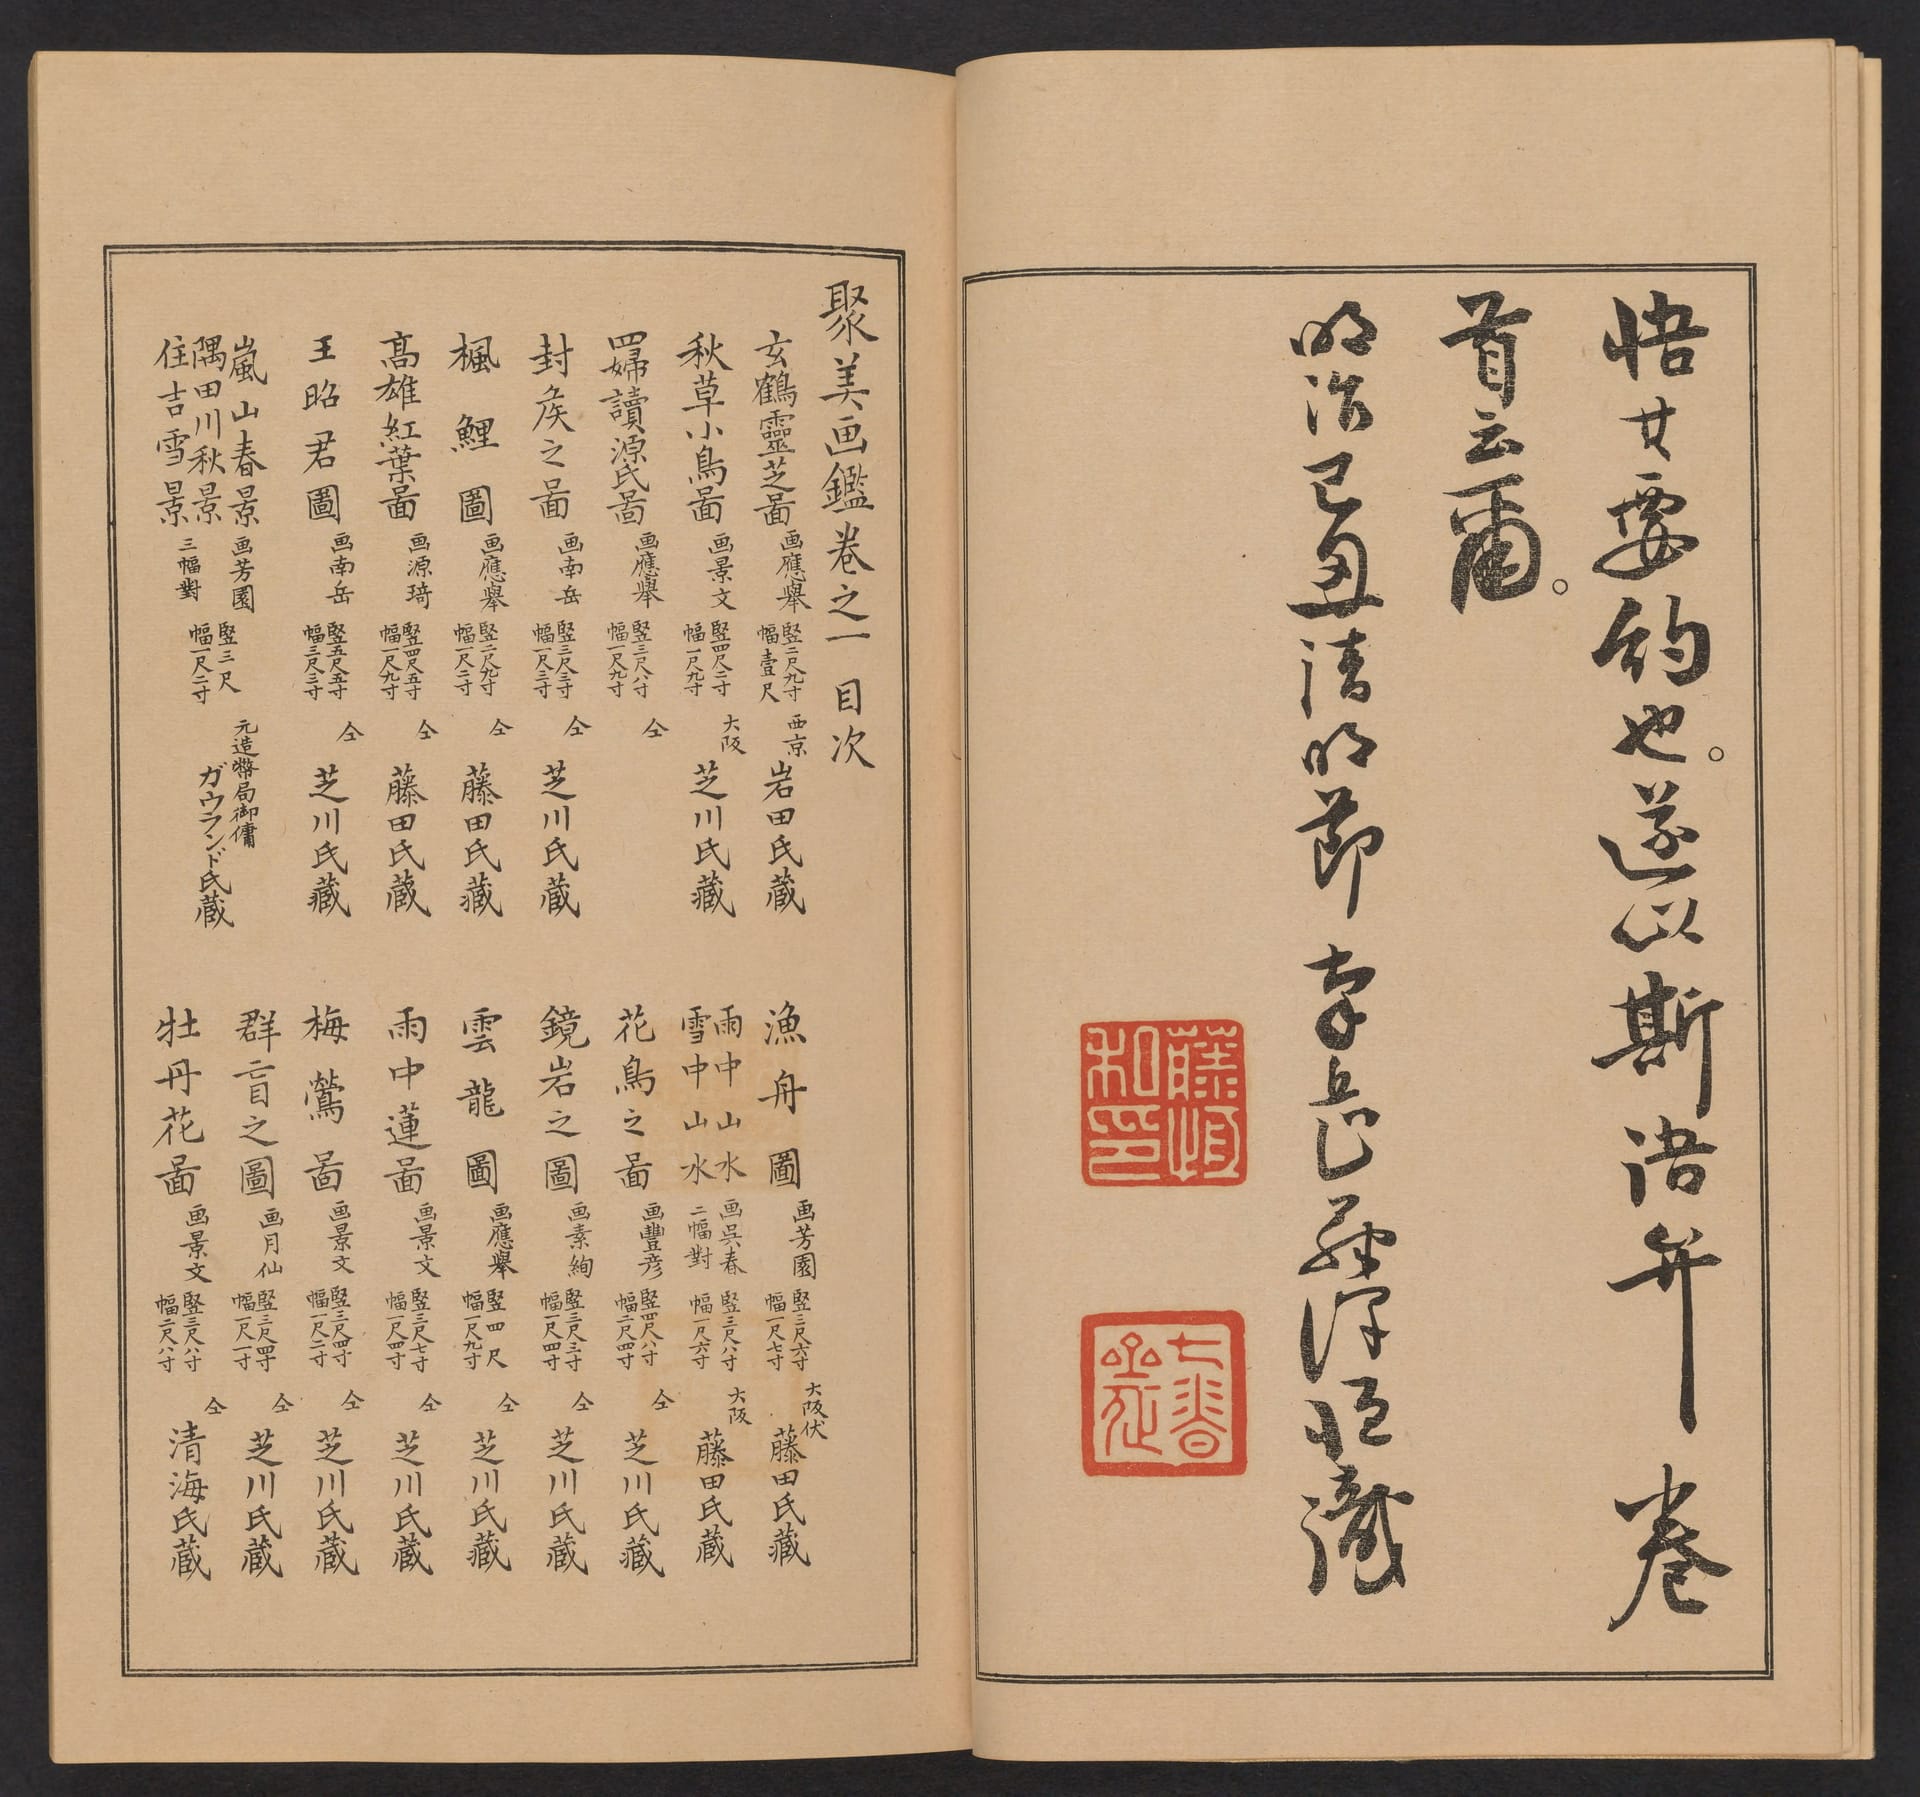 悟其要約也。遂以斯語弁卷
首云爾。
明治己丑清明節
藤恒和印
聚美画鑑卷之一 目次
玄鶴靈芝圖 画應擧 竪二尺九寸 幅壹尺 西京 岩田氏藏
秋草小鳥圖 画景文 竪四尺二寸 幅一尺九寸 大阪 芝川氏藏
四婦讀源氏圖 画應擧 竪三尺八寸 幅一尺九寸 仝
封侯之圖 画南岳 竪三尺三寸 幅一尺三寸 仝 芝川氏藏
楓鯉圖 画應擧 竪二尺九寸 幅一尺二寸 仝 藤田氏藏
高雄紅葉圖 画源琦 竪四尺五寸 幅一尺九寸 仝 藤田氏藏
王昭君圖 画南岳 竪五尺五寸 幅三尺三寸 仝 芝川氏藏
嵐山春景 画芳園
隅田川秋景
住吉雪景 三幅對
竪三尺 幅一尺二寸 元造幣局御傭 ガウランド氏藏
漁舟圖 画芳園 竪三尺六寸 幅一尺七寸 大阪伏 藤田氏藏
雨中山水 画呉春
雪中山水 二幅對
竪三尺八寸 幅一尺六寸 大阪 藤田氏藏
花鳥之圖 画豐彦 竪四尺八寸 幅二尺四寸 仝 芝川氏藏
鏡岩之圖 画素絢 竪三尺三寸 幅一尺四寸 仝 芝川氏藏
雲龍圖 画應擧 竪四尺 幅一尺九寸 仝 芝川氏藏
雨中蓮圖 画景文 竪三尺七寸 幅一尺四寸 仝 芝川氏藏
梅鶯圖 画景文 竪三尺四寸 幅一尺二寸 仝 芝川氏藏
群盲之圖 画月仙 竪三尺四寸 幅一尺一寸 仝 芝川氏藏
牡丹花圖 画景文 竪三尺八寸 幅二尺八寸 仝 清海氏藏